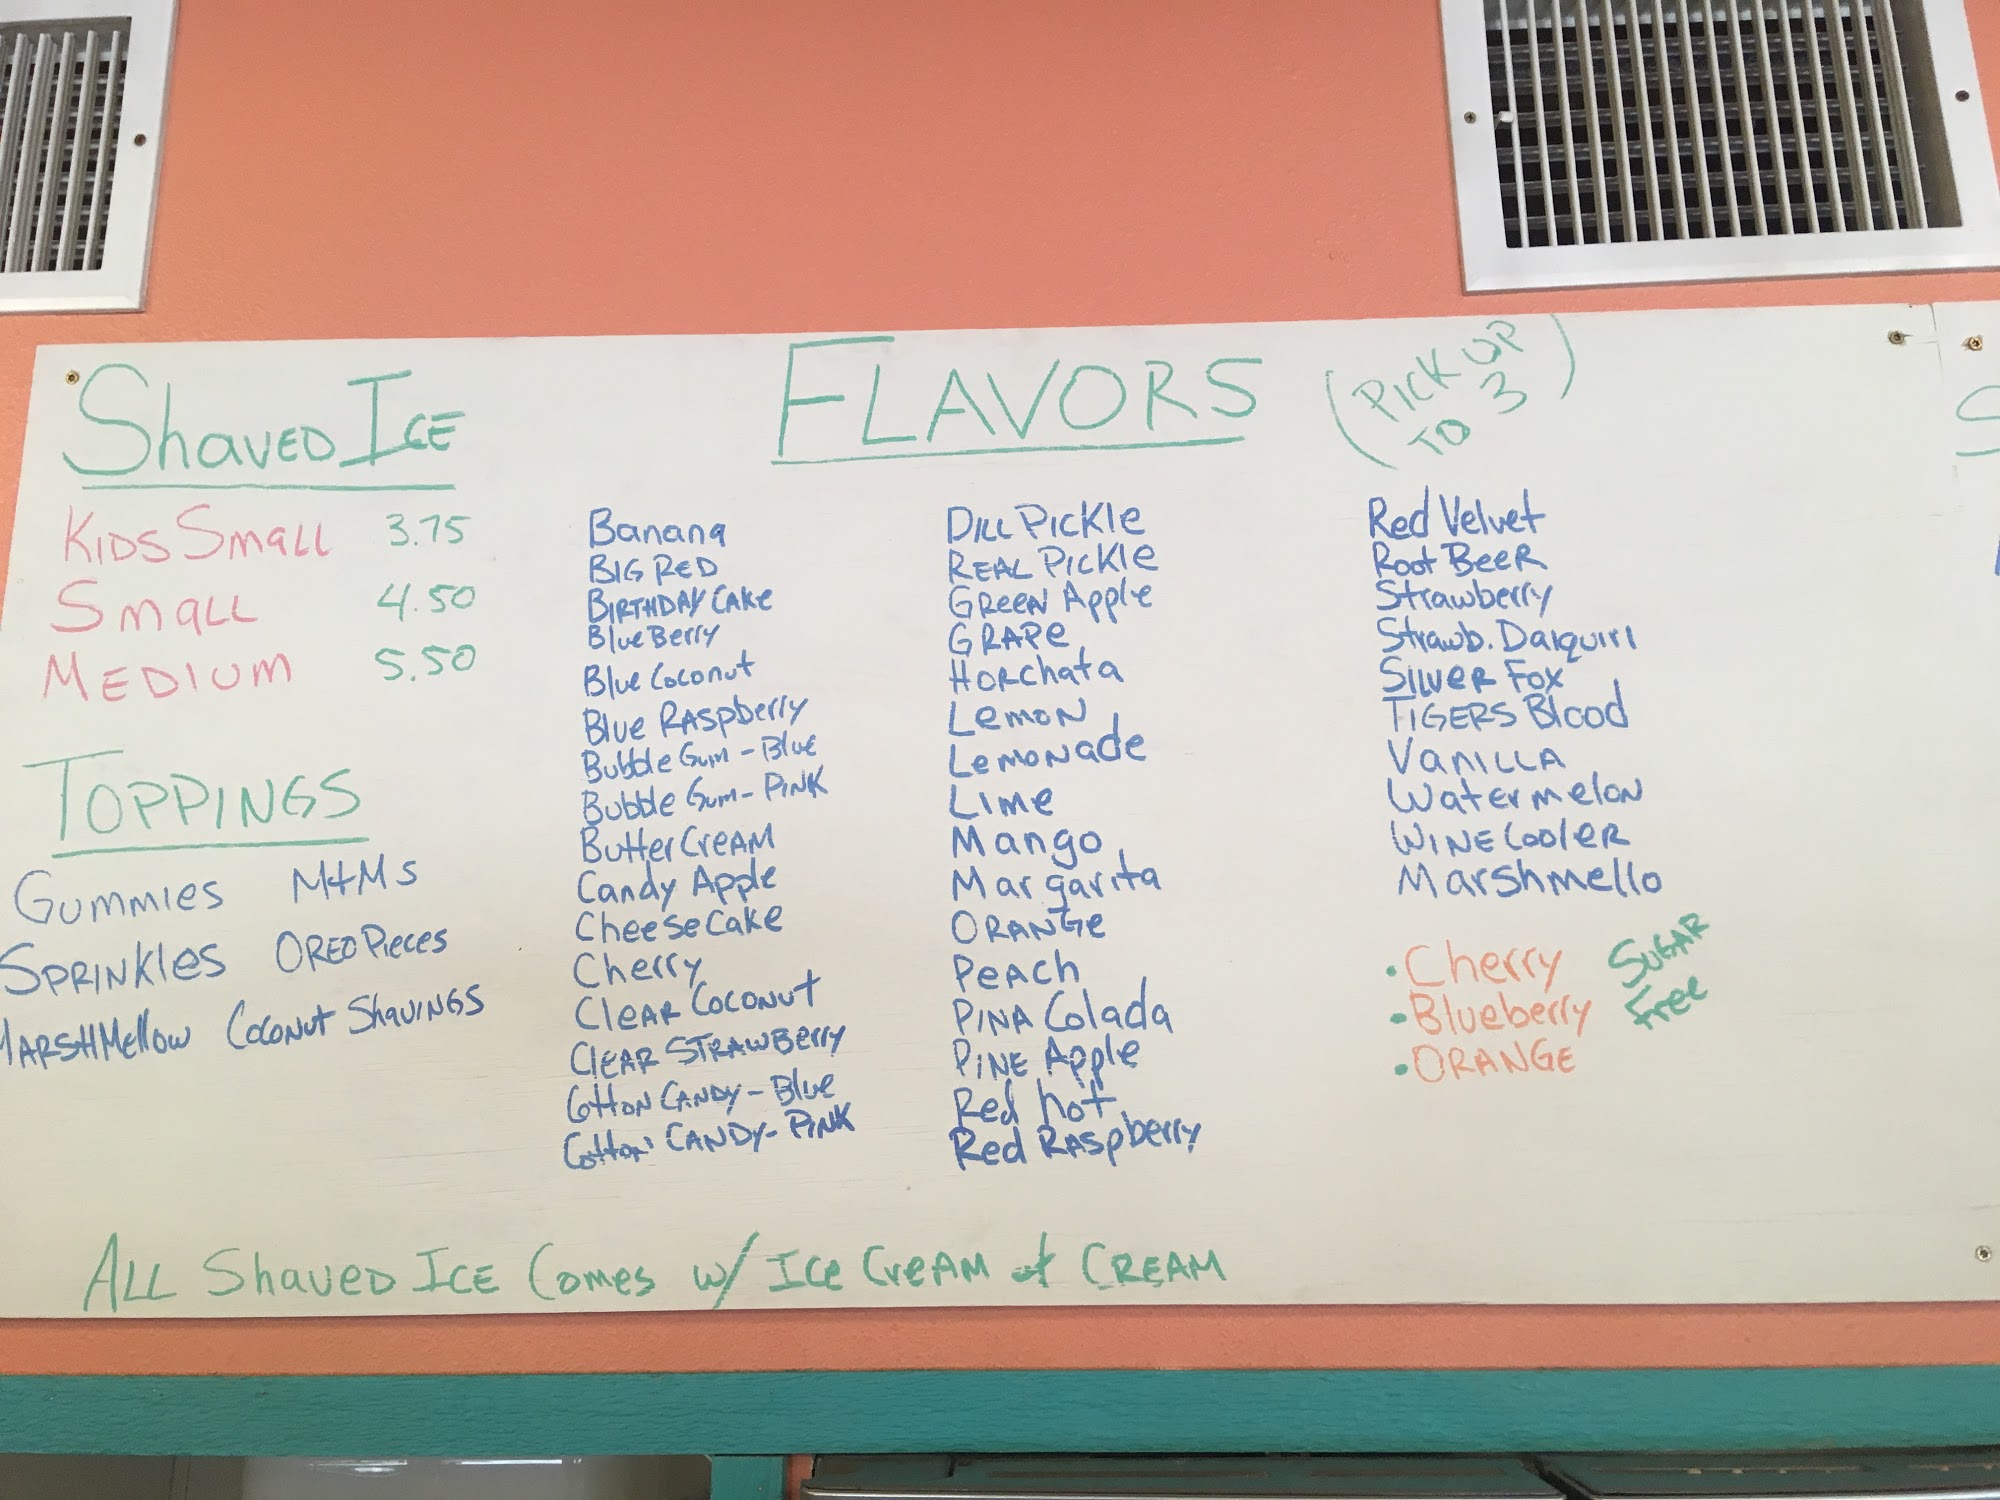 Shaved Ice
Kids Small 3.75
Small 4.50
Medium 5.50
Toppings
Gummies M+Ms
Sprinkles Oreo Pieces
Marshmellow Coconut Shavings
Flavors (Pick up to 3)
Banana
Big Red
Birthday Cake
Blue Berry
Blue Coconut
Blue Raspberry
Bubble Gum - Blue
Bubble Gum - Pink
Butter Cream
Candy Apple
Cheese Cake
Cherry
Clear Coconut
Clear Strawberry
Cotton Candy - Blue
Cotton Candy - Pink
Dill Pickle
Real Pickle
Green Apple
Grape
Horchata
Lemon
Lemonade
Lime
Mango
Margarita
Orange
Peach
Pina Colada
Pine Apple
Red hot
Red Raspberry
Red Velvet
Root Beer
Strawberry
Strawb. Daiquiri
Silver Fox
Tigers Blood
Vanilla
Watermelon
Wine Cooler
Marshmello
• Cherry
• Blueberry
• Orange
Sugar
Free
All Shaved Ice Comes w/ Ice Cream & Cream